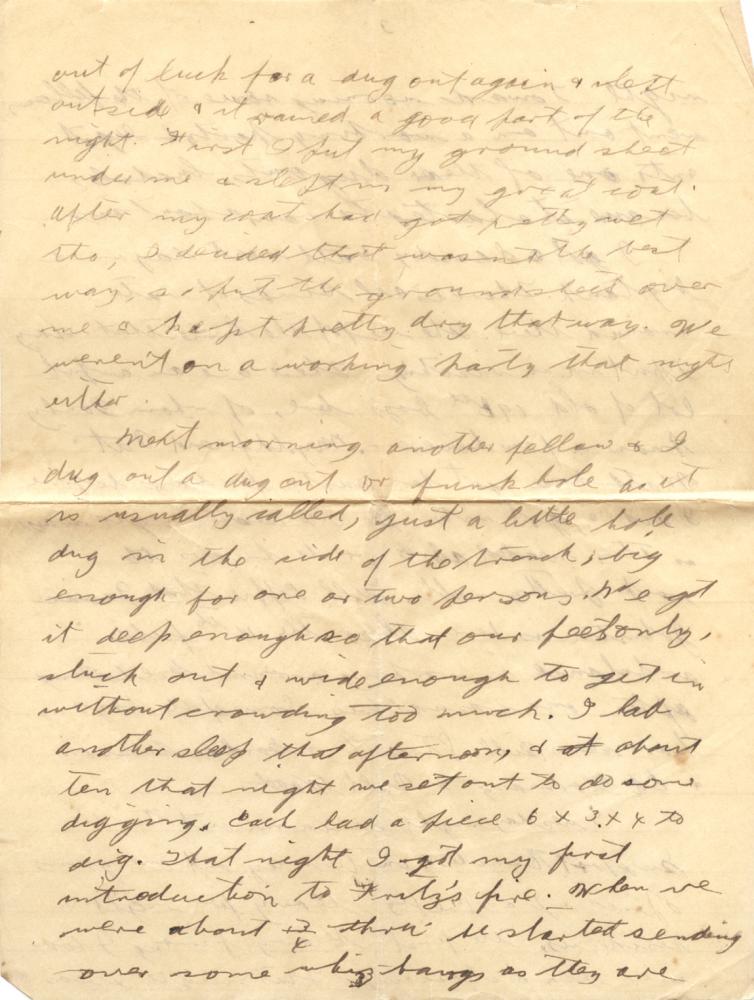 out of luck for a dug out again & slept
outside & it rained a good part of the
night. First I put my ground sheet
under me & slept in my great coat.
After my coat had got pretty wet
tho, I decided that wasn't the best
way, so put the ground sheet over
me & kept pretty dry that way. We
weren't on a working party that night
either.
Next morning another fellow & I
dug out a dug out or funk hole as it
is usually called, just a little hole
dug in the side of the trench, big
enough for one or two persons. We got
it deep enough so that our feet only,
stuck out & wide enough to get in
without crowding too much. I had
another sleep that afternoon, & at about
ten that night we set out to do some
digging. Each had a piece 6 x 3 x 4 to
dig. That night I got my first
introduction to Fritz's fire. When we
were about 3/4 thru he started sending
over some whiz bangs as they are